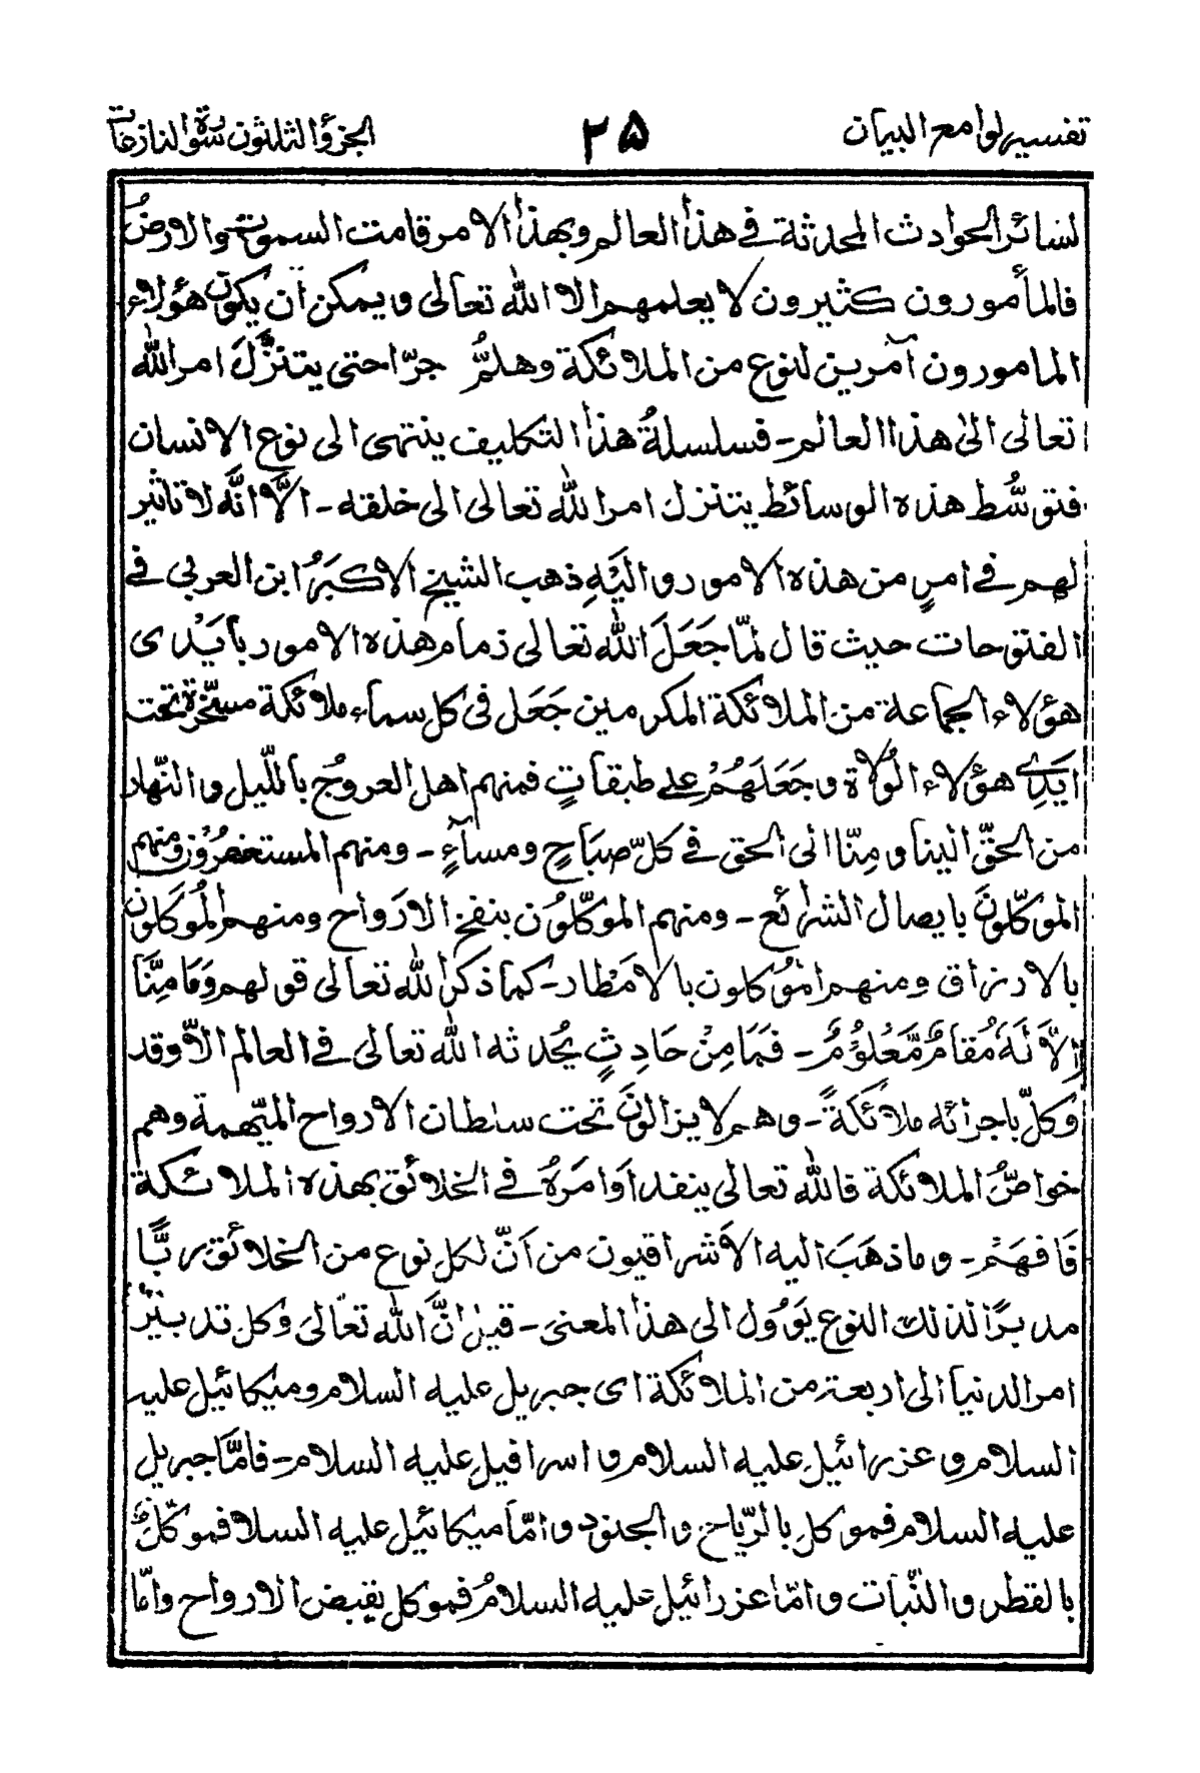 تفسير لوامع البيان ٢٥ الجزؤ الثلثون سورة والنازعات
لسائر الحوادث المحدثة فى هذا العالم وبهذا الامر قامت السموت والارض
فالمأمورون كثيرون لا يعلمهم الا الله تعالى ويمكن ان يكون هؤلاء
المامورون آمرين لنوع من الملائكة وهلمُّ جرّا حتى يتنزَّلَ امر الله
تعالى الى هذا العالم - فسلسلةُ هذا التكليف ينتهى الى نوع الانسان
فتوسُّط هذه الوسائط يتنزل امر الله تعالى الى خلقه - الاَّ انَّه لا تاثير
لهم فى امرٍ من هذه الامور واليَهِ ذهب الشيخ الاكبَرُ ابن العربى فى
الفتوحات حيث قال لمّا جَعَلَ الله تعالى زمام هذه الامور بأيَدى
هؤلاء الجماعة من الملائكة المكرمين جَعَل فى كل سماء ملائكة مسخّرة تحت
ايَدِى هؤلاء الوُلاة وجَعَلَهُمُ على طبقاتٍ فمنهم اهل العروجُ بالّليل والنّهار
من الحقّ الينا ومِنّا الى الحق فى كلّ صبَاحٍ ومساءٍ - ومنهم المستغفرُوُن ومنهم
الموكّلونَ بايصال الشرائع - ومنهم الموكّلوُن بنفخ الارَواح ومنهم المُوكَلون
بالارزاق ومنهم الموُكلون بالامَطار - كما ذكر الله تعالى قولهم وَمَا مِنَّا
اِلاَّ لَهُ مُقامٌ مَّعْلُوُمٌ - فَمَا مِنْ حَادِثٍ يُحدثه الله تعالى فى العالم الاّ وقد
وَكلّ باجرائه ملائكةً - وهم لا يزالونَ تحت سلطان الارواح المتّهيمة وهم
خواصُّ الملائكة فالله تعالى ينفد اَوامَرهُ فى الخلائق بهذه الملائكة
فَافهَمْ - وما ذهَبَ اليه الاَشراقيون من اَنّ لكل نوع من الخلائق ربَّا
مدبرًا لذلك النوع يَوُول الى هذا المعنى - قيل انَّ الله تعَالى وَكل تدبيْرَ
امر الدنيا الى اربعة من الملائكة اى جبريل عليه السلام وميكائيل عليه
السلام و عزرائيل عليه السلام و اسرافيل عليه السلام - فامَّا جبريل
عليه السلام فموكل بالرّياح والجنود وامّا ميكائيل عليه السلام فموكّلٌ
بالقطر والنّبات وامّا عزرائيل عليه السلامُ فموكل بقبض الارواح وامّا